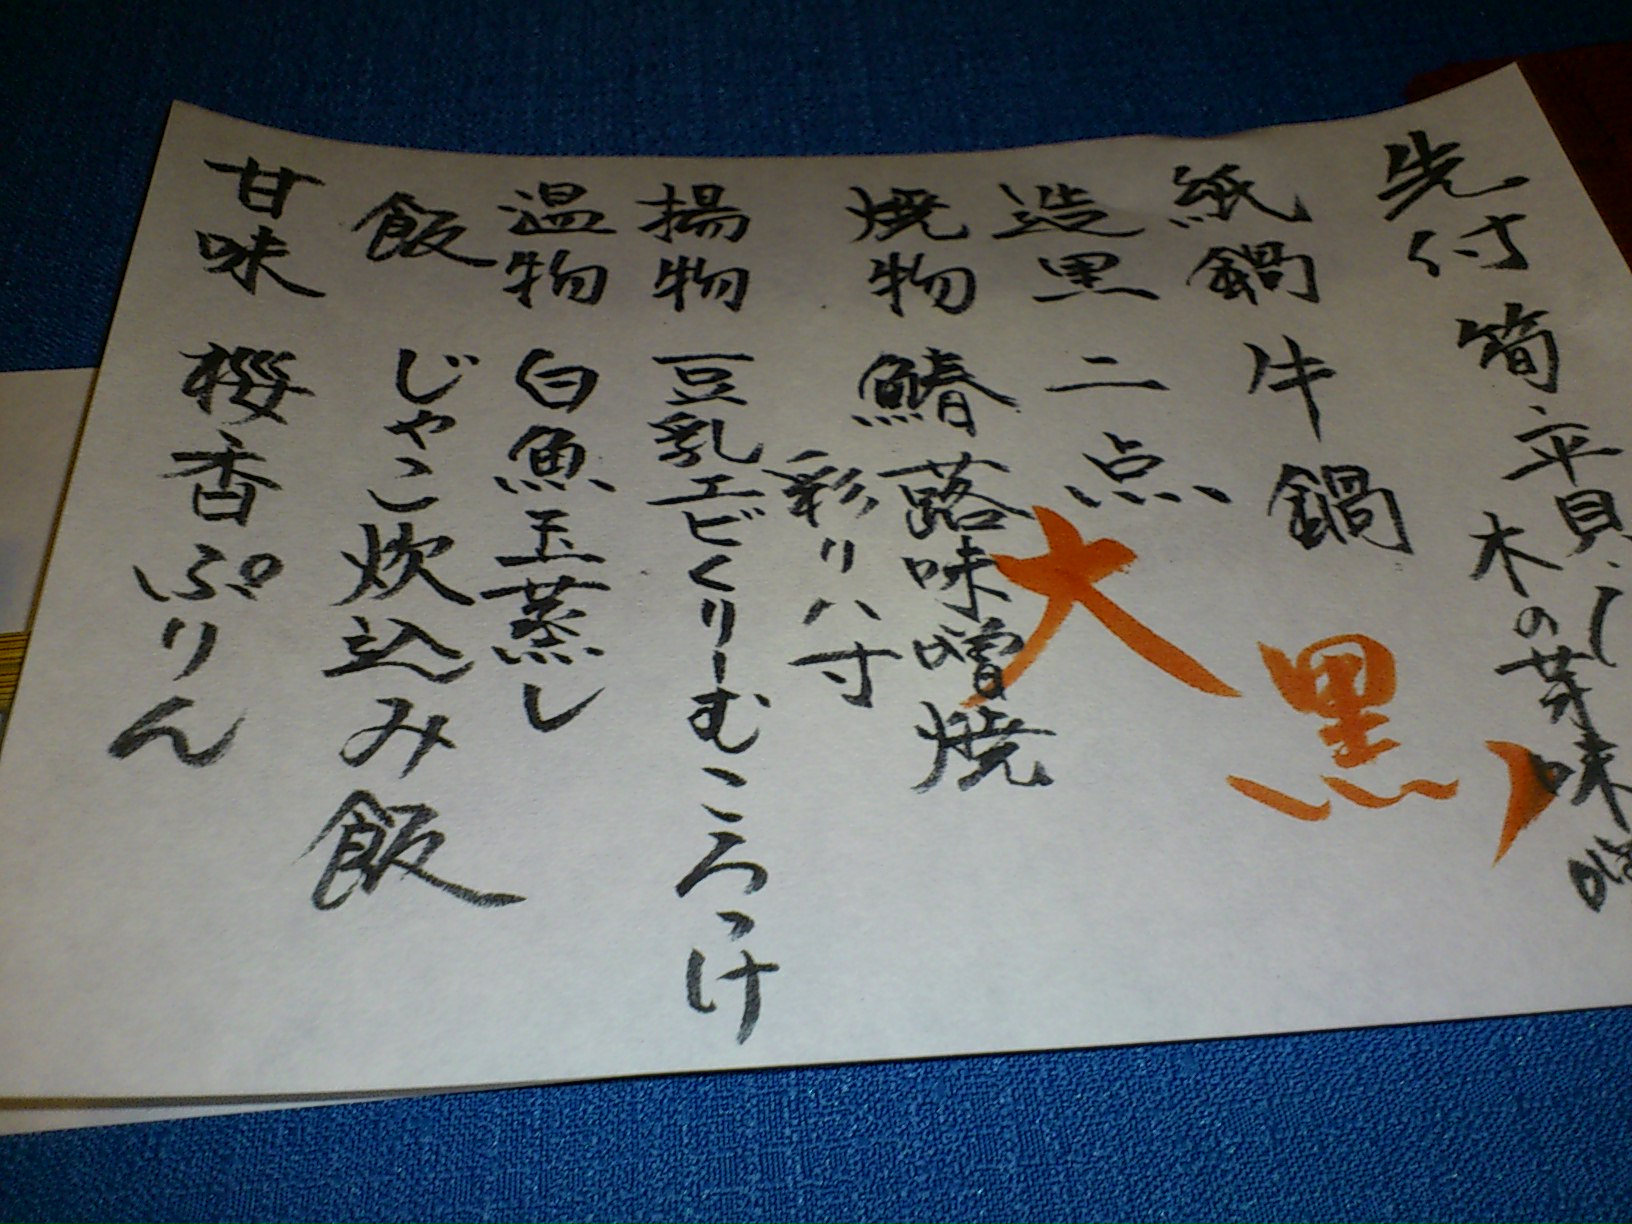 先付 筍 平貝
木の芽味噌
紙鍋 牛鍋
造里 二点
焼物 鰆 蕗味噌焼
彩り八寸
揚物 豆乳エビくりーむころっけ
温物 白魚玉蒸し
飯 じゃこ炊込み飯
甘味 桜香ぷりん
大黒